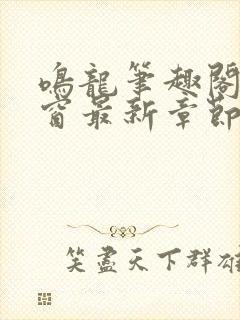 鳴龍筆趣閣
窗最新章節
笑盡天下群雄